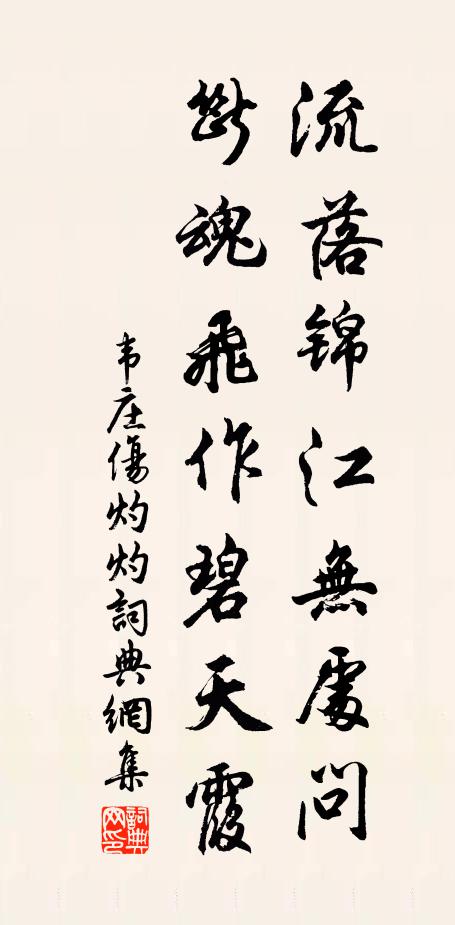 流落锦江無處問
斷魂飛作碧天霞
韦庄傷灼灼詞典網集
詞典网印